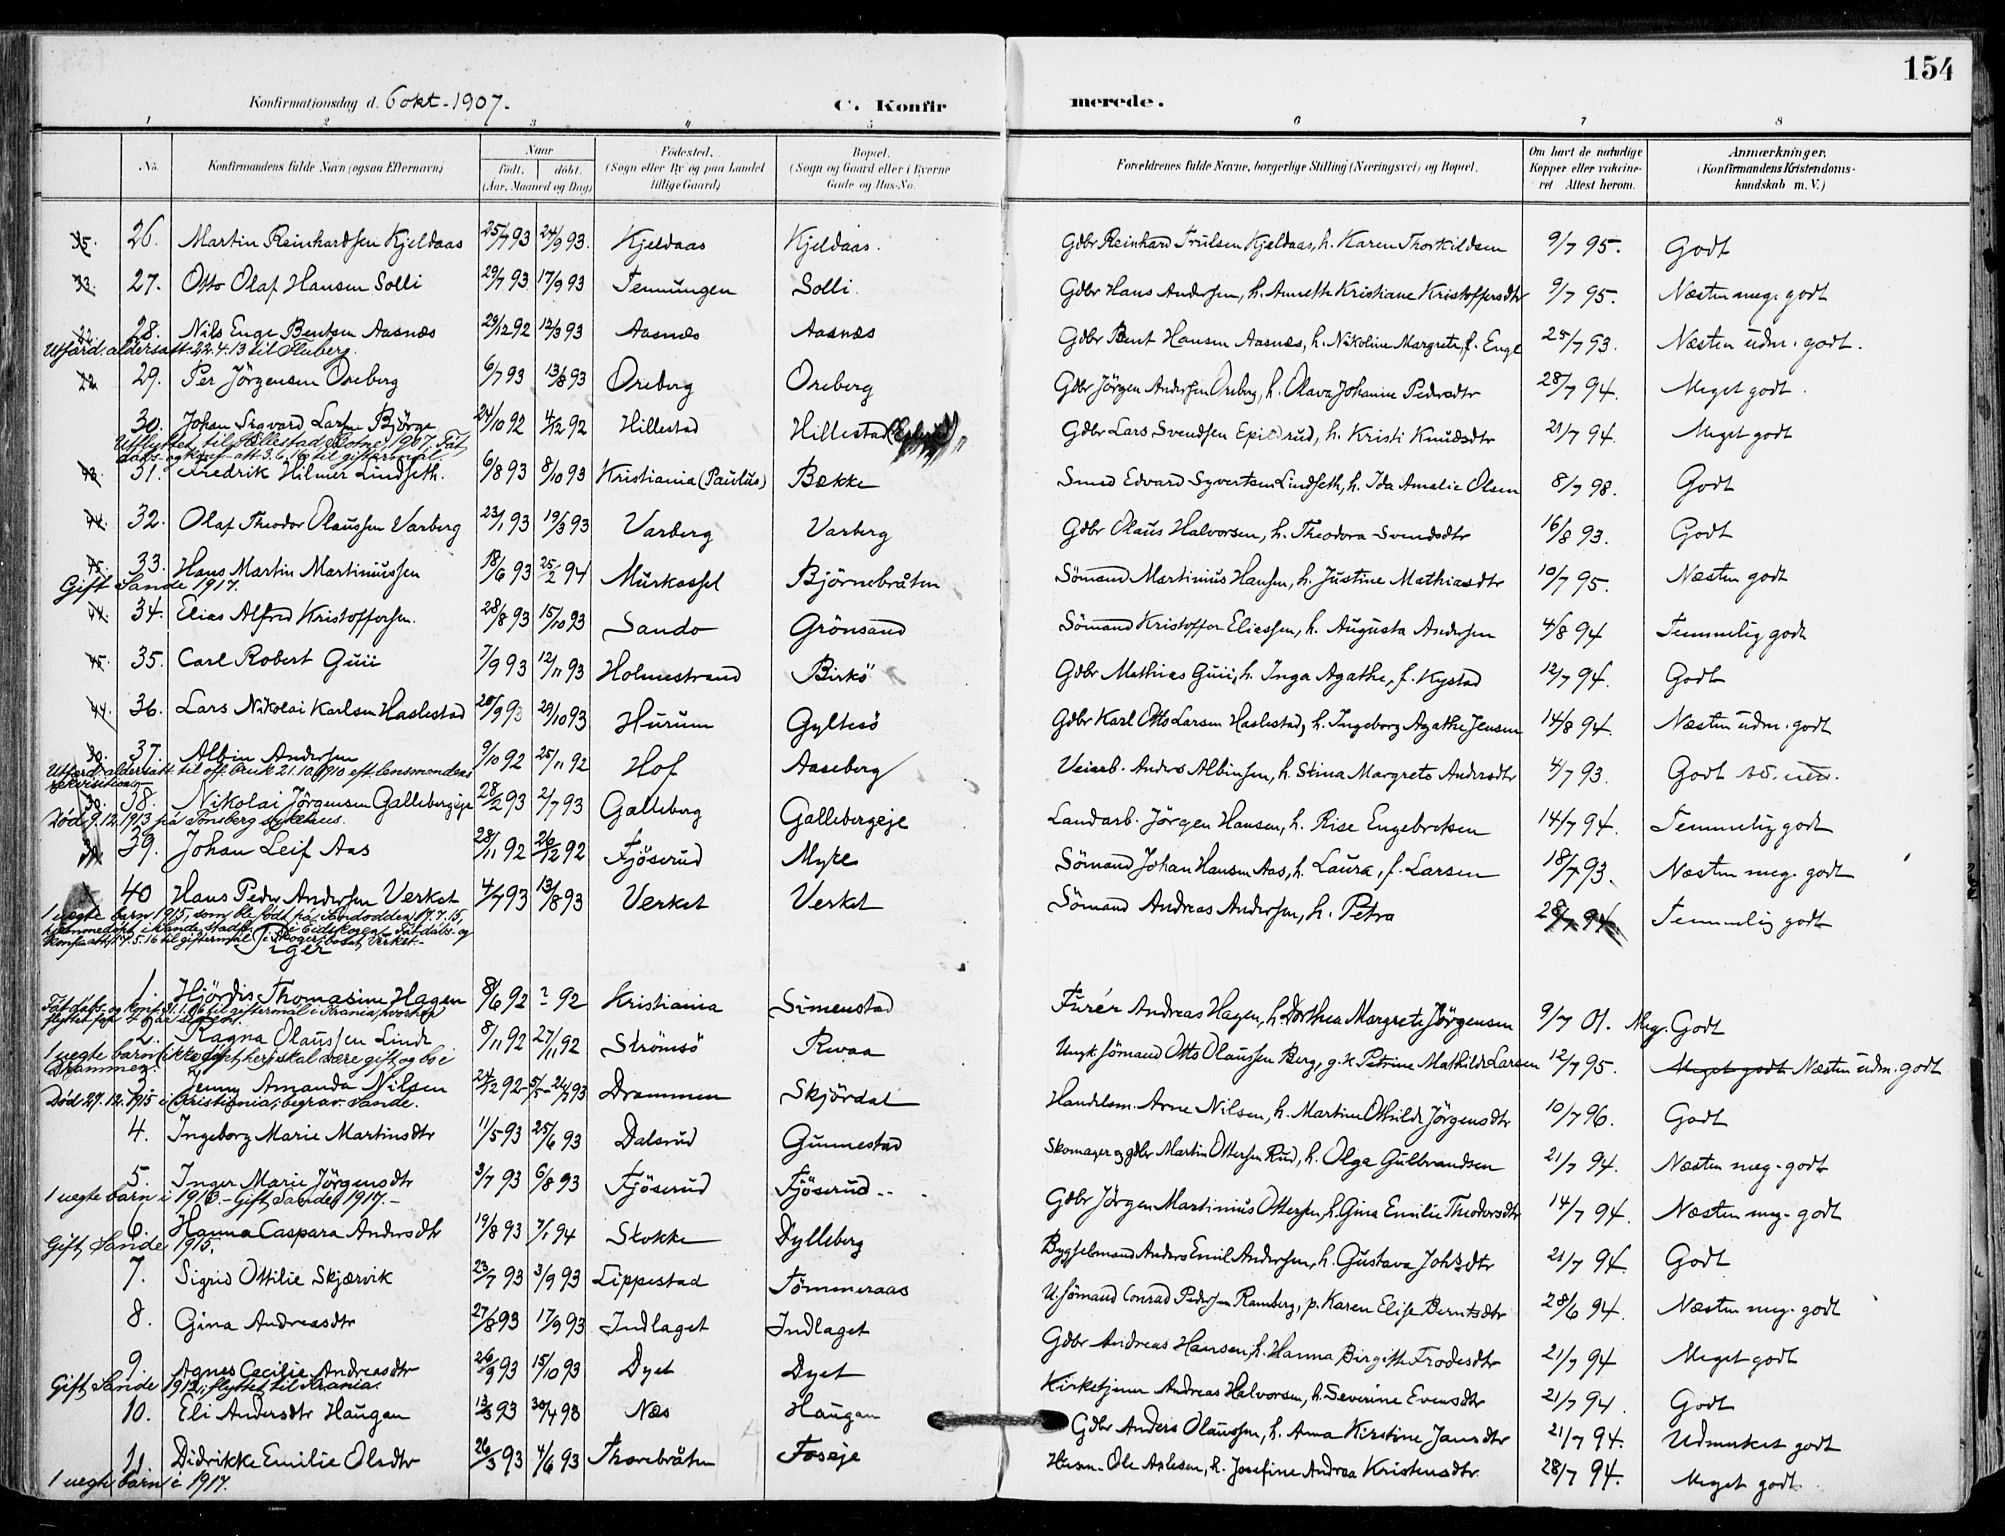 154
Konfirmationsdag d. 6 okt. 1907.
C. Konfirmerede.
1 2 3 4 5 6 7 8
No. Konfirmandens fulde Navn (ogsaa Efternavn) Naar født. døbt. (Aar, Maaned og Dag) Fødested. (Sogn eller By og paa Landet tillige Gaard) Bopæl. (Sogn og Gaard eller i Byerne Gade og Hus-No. Forældrenes fulde Navne, borgerlige Stilling (Næringsvei) og Bopæl. Om havt de naturlige Kopper eller vakcineret Attest herom. Anmærkninger. (Konfirmandens Kristendomskundskab m. V.)
26. Martin Reinhardsen Kjeldaas 25/7 93 24/9 93. Kjeldaas Kjeldaas. Gdbr Reinhard Trulsen Kjeldaas, h. Karen Thorkildsen 9/7 95. Godt
27. Otto Olaf Hansen Solli 29/7 93 17/9 93 Tennungen Solli. Gdbr Hans Andersen, h. Annette Kristiane Kristoffersdtr 9/7 95. Næsten meg. godt
28. Nils Enge Bentsen Aasnæs 29/12 92 12/3 93 Aasnæs Aasnæs Gdbr Bent Hansen Aasnæs, h. Nikoline Margrete, f. Enge 25/7 93. Næsten udm. godt.
Utfærd. aldersatt. 22.4.13 til Fluberg.
29. Per Jörgensen Oreberg 6/7 93 13/8 93 Oreberg Oreberg Gdbr Jörgen Andersen Oreberg, h. Olava Johanne Pedersdtr 28/7 94. Meget godt.
30. Johan Sigvard Larsen Björge 24/10 92 4/12 92 Hillestad Hillestad Gdbr Lars Svendsen h. Kristi Knudsdtr 21/7 94. Meget godt
Utflyttet til Hillestad, Botne, 1907. Fåt dåbs- og konf. att. 3.6.16 til giftermål.
31. Fredrik Hilmer Lindseth. 6/8 93 8/10 93 Kristiania (Paulus) Bække Smed Edvard Syvertsen Lindseth, h. Ida Amalie Olsen 8/7 98. Godt
32. Olaf Theodor Olaussen Varberg 23/1 93 19/3 93 Varberg Varberg Gdbr Olaus Halvorsen, h. Theodora Svendsdtr 16/8 93. Godt
33. Hans Martin Martiniussen 18/6 93 25/2 94 Murkassel Björnebråten Sömand Martinius Hansen, h. Justine Mathiasdtr 10/7 95. Næsten godt
Gift Sande 1917.
34. Elias Alfred Kristoffersen. 28/8 93 15/10 93 Sando Grönsand Sömand Kristoffer Eliassen, h. Augusta Andersen 4/8 94 Temmelig godt
35. Carl Robert Guii 7/9 93 12/11 93 Holmestrand Birkö Gdbr Mathias Guii, h. Inga Agathe, f. Kystad 12/7 94. Godt
36. Lars Nikolai Karlsen Haslestad 20/9 93 29/10 93 Hurum Gyltesö Gdbr Karl Otto Larsen Haslestad, h. Ingeborg Agathe Jensen 14/8 94. Næsten udm. godt
37. Albin Andersen 9/10 92 25/11 92 Hof Aaseberg Veiarb. Anders Albinsen, h. Stina Margrete Andersdtr 4/7 93. Godt
Utfærd. aldersatt. til off. bruk 21.10.1910 eft. lensmandens rekvisition.
38. Nikolai Jörgensen Gallebergeje 28/2 93 2/7 93 Galleberg Gallebergeje Landarb. Jörgen Hansen, h. Rise Engebretsen 14/7 94. Temmelig godt
Död 9.12.1913 på Tönsberg sykehus.
39. Johan Leif Aas 28/11 92 26/12 92 Fjöserud Myre Sömand Johan Hansen Aas, h. Laura, f. Larsen 18/7 93. Næsten meg. godt
40 Hans Peder Andersen Verket 4/7 93 13/8 93 Verket Verket Sömand Andreas Andersen, h. Petra 28/7 94. Temmelig godt
1 uegte barn 1915, som ble födt på Sandodden 17.7.15, hjemmedöpt i Sande, stadf. i Eidskogen. Fåt dåbs- og konf. att. 17.5.16 til giftermål i Skoger, bosat Verket.
Piger
1. Hjördis Thomasine Hagen 8/6 92 ? 92 Kristiania Simenstad Furér Andreas Hagen, h. Dorthea Margrete Jörgensen 9/7 01. Meg. Godt
Fåt dåbs- og konf. 31.1.16 til giftermål i Krania, hvorhen flyttet for 4 år siden.
2. Ragna Olaussen Lindt 8/11 92 27/11 92 Strömsö Revaa Ungk. sömand Otto Olaussen Berg, g.k. Petrine Mathilde Larsen 12/7 95. Meget godt Næsten udm. godt
1 uegte barn (ikke döpt her) skal være gift og bo i Drammen.
3. Jenny Amanda Nilsen 24/12 92 5/5 - 24/9 93 Drammen Skjördal Handelsm. Arne Nilsen, h. Martine Othilde Jörgensdtr 10/7 96. Godt
Död 29.12.1915 i Kristiania; begrav. Sande.
4. Ingeborg Marie Martinsdtr 11/5 93 25/6 93 Dalsrud Gunnestad Skomager og gdbr Martin Ottersen Rud, h. Olga Gulbrandsen 21/7 94. Næsten meg. godt
5. Inger Marie Jörgensdtr 3/7 93 6/8 93 Fjöserud Fjöserud Gdbr Jörgen Martinius Ottersen, h. Gina Emilie Theodorsdtr 14/7 94. Næsten meg. godt
1 uegte barn i 1916. - Gift, Sande, 1917. -
6. Hanna Caspara Andersdtr 19/8 93 7/1 94 Stokke Dylleberg Bygselmand Anders Emil Andersen, h. Gustava Johsdtr 21/7 94. Godt
Gift, Sande 1915.
7. Sigrid Ottilie Skjærvik 23/7 93 3/9 93 Lippestad Tömmeraas U. sömand Conrad Pedersen Ramberg, p. Karen Elise Berntsdtr 28/6 94. Næsten meg. godt
8. Gina Andreasdtr 27/8 93 17/9 93 Indlaget Indlaget Gdbr Andreas Hansen, h. Hanna Birgithe Frodesdtr 21/7 94 Meget godt
9. Agnes Cecilie Andreasdtr 26/9 93 15/10 93 Dyet Dyet Kirketjener Andreas Halvorsen, h. Severine Evensdtr 21/7 94. Godt
Gift, Sande 1912; flyttet til Krania.
10. Eli Andersdtr Haugan 13/3 93 30/4 93 Næs Haugan Gdbr Anders Olaussen, h. Anna Kirstine Jansdtr 21/7 94. Udmerket godt
11. Didrikke Emilie Olsdtr 26/3 93 4/6 93 Thorebråten Foseje Husm. Ole Aslesen, h. Josefine Andrea Kristensdtr. 28/7 94. Meget godt.
1 uegte barn i 1917.